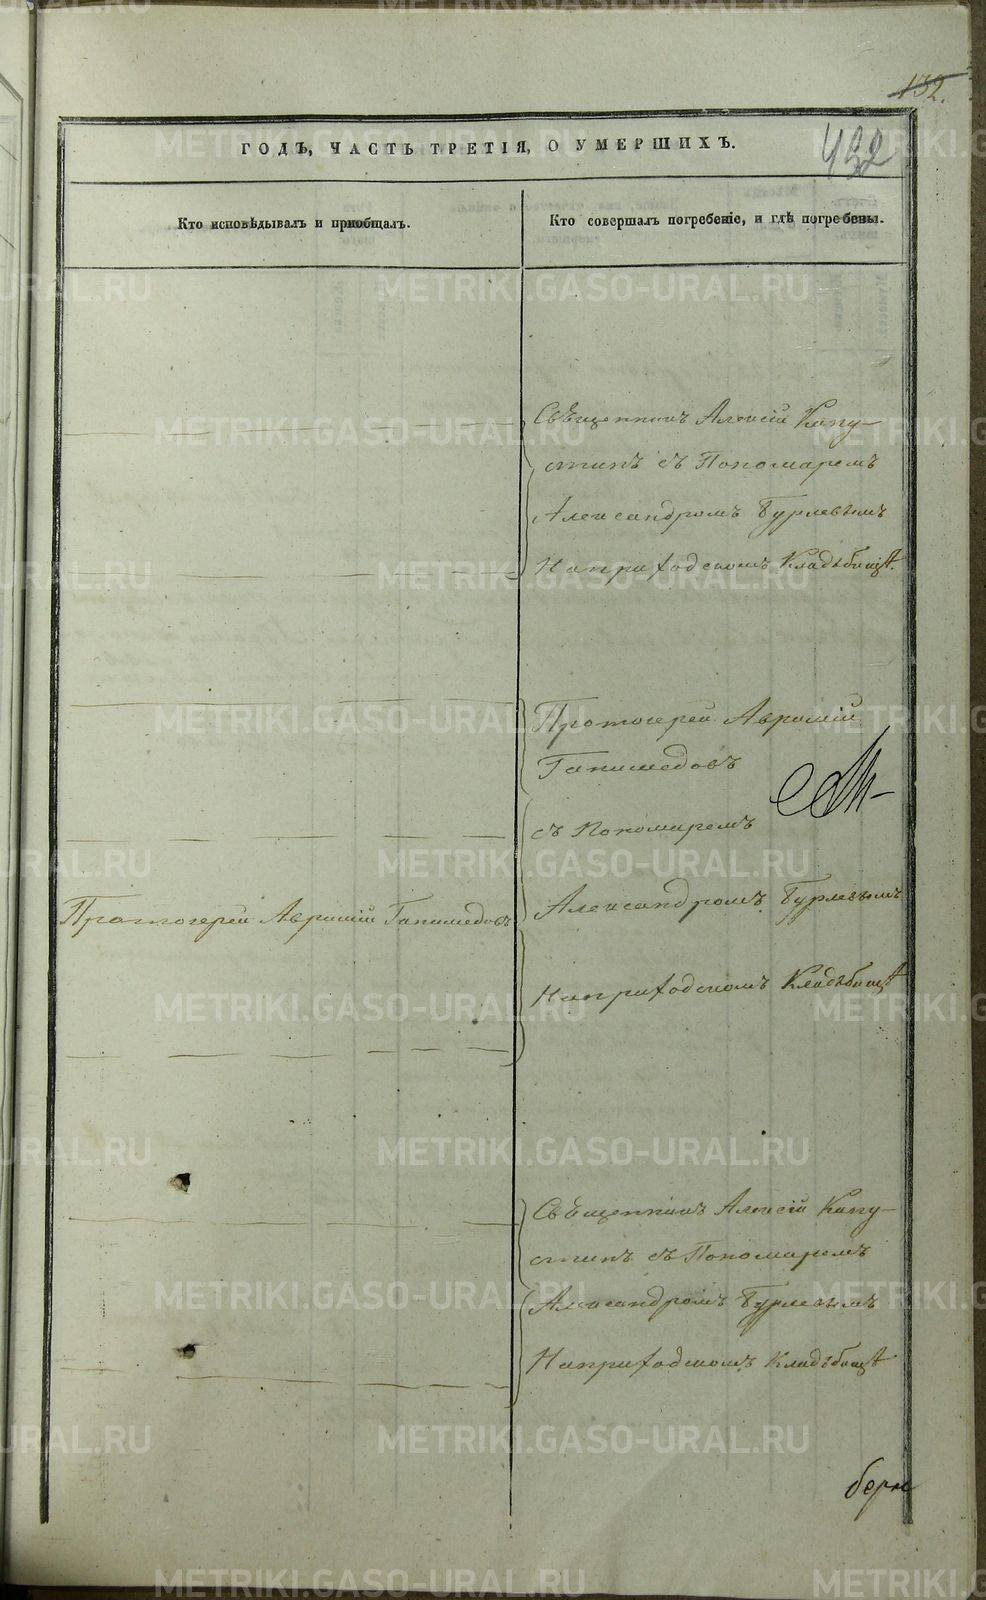 132.
432
ГОДЪ, ЧАСТЬ ТРЕТІЯ, О УМЕРШИХЪ.
Кто исповѣдывалъ и пріобщалъ.
Кто совершалъ погребеніе, и гдѣ погребены.
Священникъ Алексій Капу-
стинъ съ Пономаремъ
Александромъ Бурлевымъ
На приходскомъ Кладъбищѣ.
Протоіерей Аврамій
Ганимедовъ
съ Пономаремъ
Протоіерей Аврамій Ганимедовъ
Александромъ Бурлевымъ
На приходскомъ Кладъбищѣ
Священникъ Алексій Капу-
стинъ съ Пономаремъ
Александромъ Бурлевымъ
На приходскомъ Кладъбищѣ
METRIKI.GASO-URAL.RU